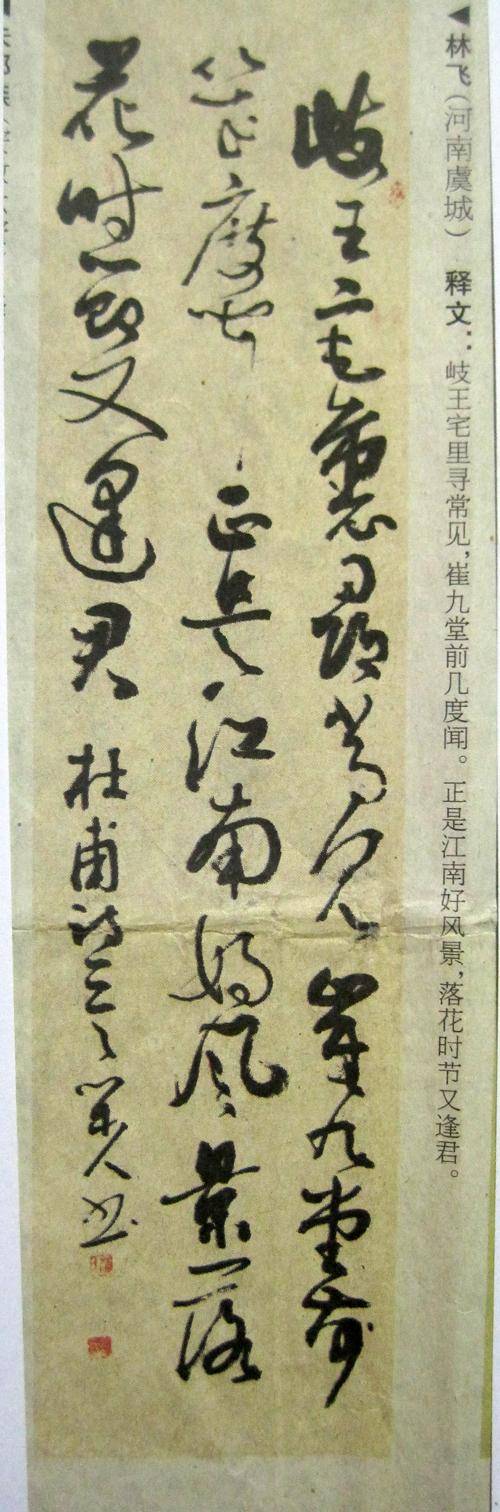 ◀林飞（河南虞城） 释文：岐王宅里寻常见，崔九堂前几度闻。正是江南好风景，落花时节又逢君。
岐王宅裏尋常見崔九堂前
幾度聞 正是江南好風景落
花時節又逢君 杜甫詩